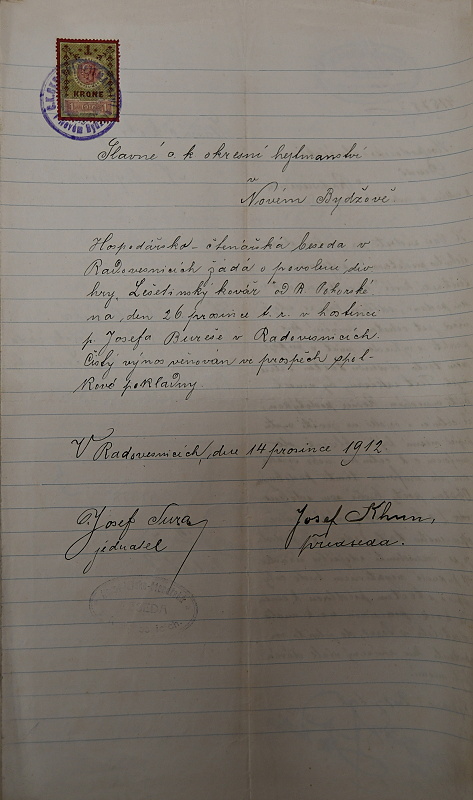 1
KRONE
Slavné c. k okresní hejtmanství
v
Novém Bydžově
Hospodářsko-čtenářská beseda v
Radovesnicích žádá o povolení div
hry „Lešetínský kovář" od A Pohorské
na den 26 prosince t. r. v hostinci
p. Josefa Bureše v Radovesnicích.
Čistý výnos věnován ve prospěch spol-
kové pokladny.
V Radovesnicích, dne 14 prosince 1912
Josef
Josef Khun,
jednatel
předseda.